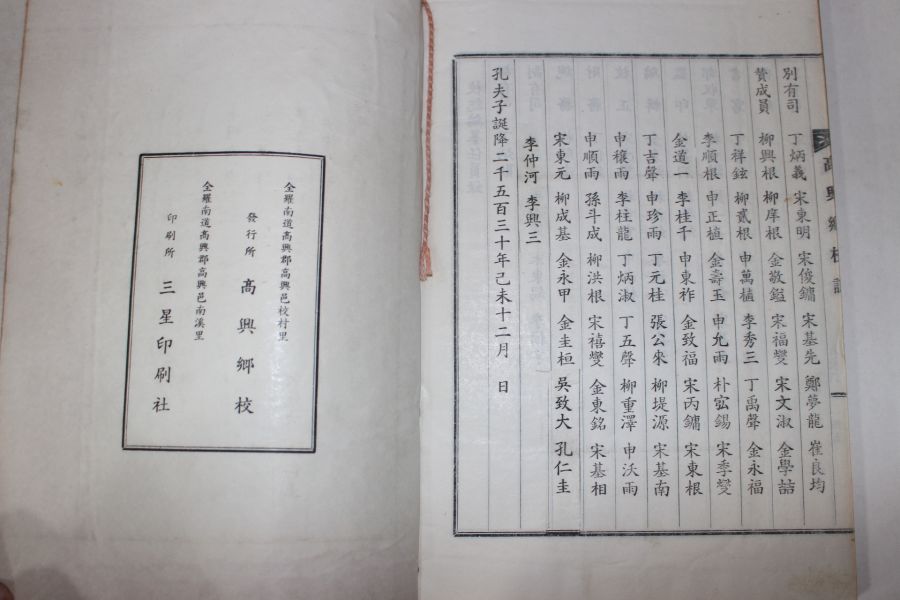 高興鄕校誌
別有司 丁炳義 宋東明 宋俊鏞 宋基先 鄭夢龍 崔良均
贊成員 柳興根 柳庠根 金敬鎰 宋福燮 宋文淑 金學喆
丁祥鉉 柳貳根 申萬植 李秀三 丁禹聲 金永福
李順根 申正植 金壽玉 申允雨 朴宖錫 宋季燮
金道一 李桂千 申東祚 金致福 宋丙鏞 宋東根
丁吉聲 申珍雨 丁元桂 張公來 柳堤源 宋基南
申穰雨 李柱龍 丁炳淑 丁五聲 柳重澤 申沃雨
申順雨 孫斗成 柳洪根 宋禧燮 金東銘 宋基相
宋東元 柳成基 金永甲 金圭桓 吳致大 孔仁圭
李仲河 李興三
孔夫子誕降二千五百三十年己未十二月 日
全羅南道高興郡高興邑校村里
發行所 高興鄕校
全羅南道高興郡高興邑南溪里
印刷所 三星印刷社